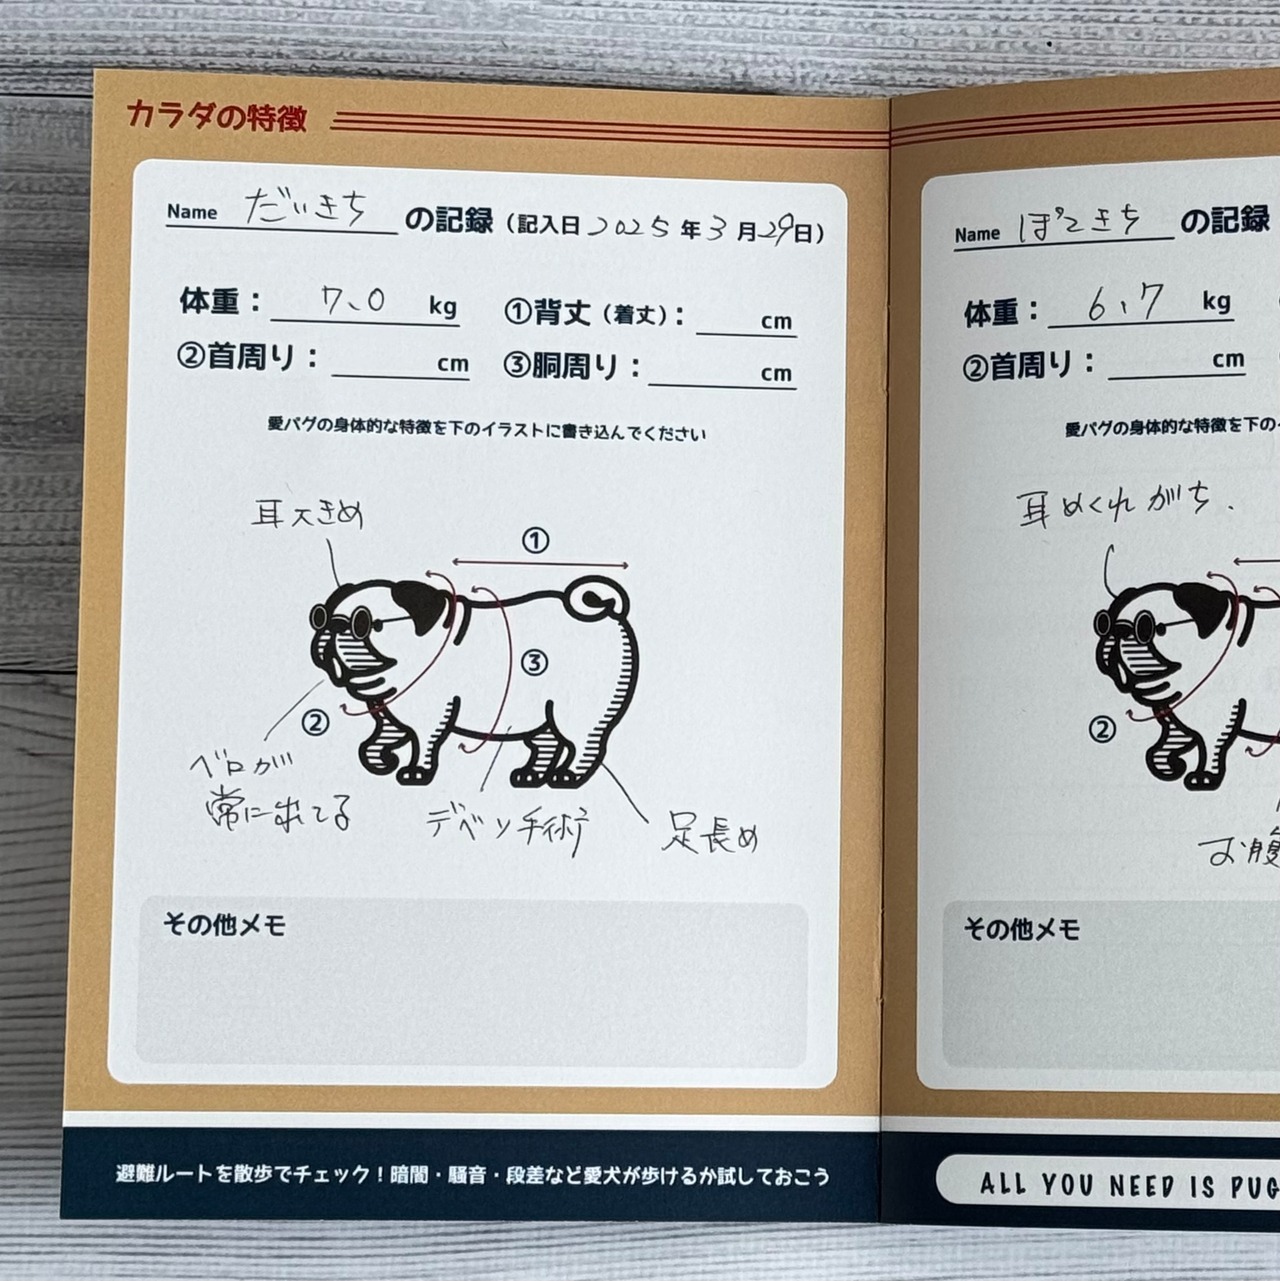 カラダの特徴
Name だいきち の記録（記入日 2025 年 3 月 29 日）
体重： 7、0 kg ①背丈（着丈）： cm
②首周り： cm ③胴周り： cm
愛パグの身体的な特徴を下のイラストに書き込んでください
耳大きめ
①
③
②
ベロが
常に出てる
デベソ手術
足長め
その他メモ
避難ルートを散歩でチェック！暗闇・騒音・段差など愛犬が歩けるか試しておこう
Name ぽてきち の記録
体重： 6、7 kg
②首周り： cm
愛パグの身体的な特徴を下の
耳めくれがち.
②
お腹
その他メモ
ALL YOU NEED IS PUG